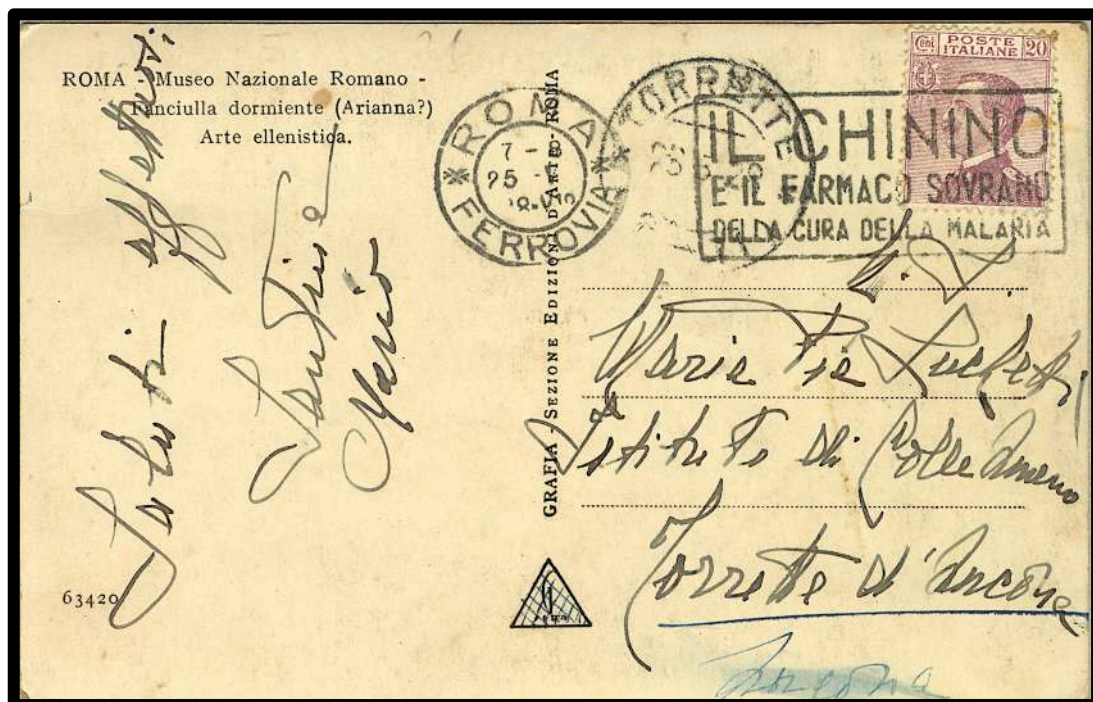 ROMA - Museo Nazionale Romano -
Fanciulla dormiente (Arianna?)
Arte ellenistica.
Saluti affettuosi
Mario
63420
GRAFIA - SEZIONE EDIZIONI D'ARTE - ROMA
ROMA
7 -
25
FERROVIA
TORRETTE
IL CHININO
E IL FARMACO SOVRANO
DELLA CURA DELLA MALARIA
Cent POSTE ITALIANE 20
Maria Pia
Istituto di Colle Ameno
Torrette d'Ancona
Ancona